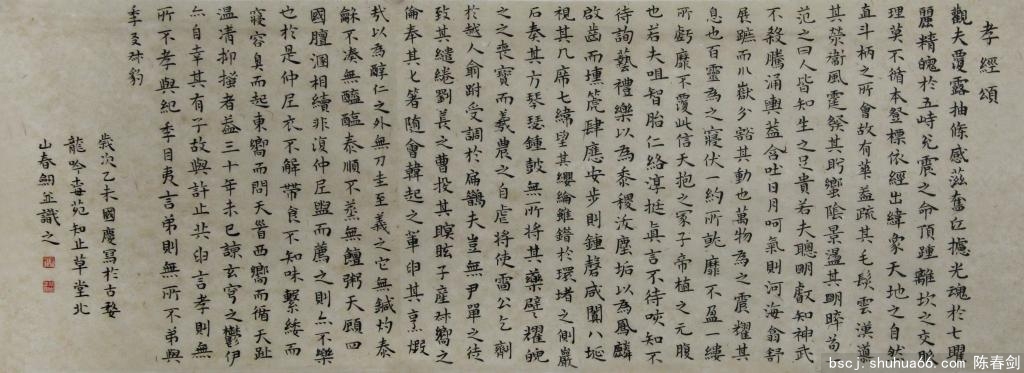 孝經頌
觀夫覆露抽條感滋奮立攄光魂於七曜
麗精魄於五時兗震之命頂踵離坎之交形
理莫不循本登標依經出緯象天地之自然
直斗柄之所會故有華蓋疏其毛髮雲漢導
其榮衛風霆發其盻蠁陰景盪其明晬苟
范之曰人皆知生之足貴若夫聰明叡知神武
不殺騰涌輿蓋含吐日月呵氣則河海翕舒
展蹠而川嶽分豁其動也萬物為之震耀其
息也百靈為之寢伏一約所毓靡不盈一縷
所虧靡不覆此信天抱之冢子帝植之元腹
也若夫咀智胎仁絡淳挺真言不待唊知不
待詢藝禮樂以為黍稷汝塵垢以為鳳麟
啟齒而壎箎肆應安步則鍾磬咸闐八埏
視其几席七緯望其纓綸雖錯於環堵之側巖
石奏其方琴瑟鍾鼓無所將其藥壁耀魄
之之喪寶而羲農之自虐將使雷公乞劑
於越人俞跗受調於扁鵲夫豈無尹單之待
致其繾綣劉長之曹投其瞑眩子產叔嚮之
倫奉其匕箸隨會韓起之軍供其烹煆
哉以為醇仁之外無刀圭至義之它無鍼灼泰
龢不湊無醯醢泰順不蒸無饘粥天顧四
國膻溷相續非復仲尼盥而薦之則亦不樂
也於是仲尼衣不解帶食不知味繫緌而
寢容臭而起東嚮而問天晉西嚮而循天趾
溫凊抑搔者益三十年未已諒玄穹之鬱伊
亦自幸其有子故與許止共由言孝則無
所不孝與紀季目夷言弟則無所不弟與
季友叔豹
歲次乙未國慶寫於古婺
龍吟毒苑知止草堂北
山春劍並識之
bscj.shuhua66.com 陈春剑